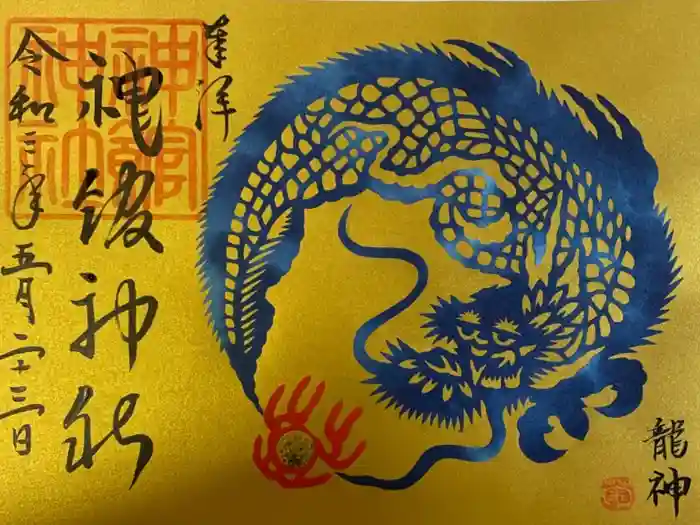 奉拝
神館神社
令和三年五月二十三日
神館
神社
龍神